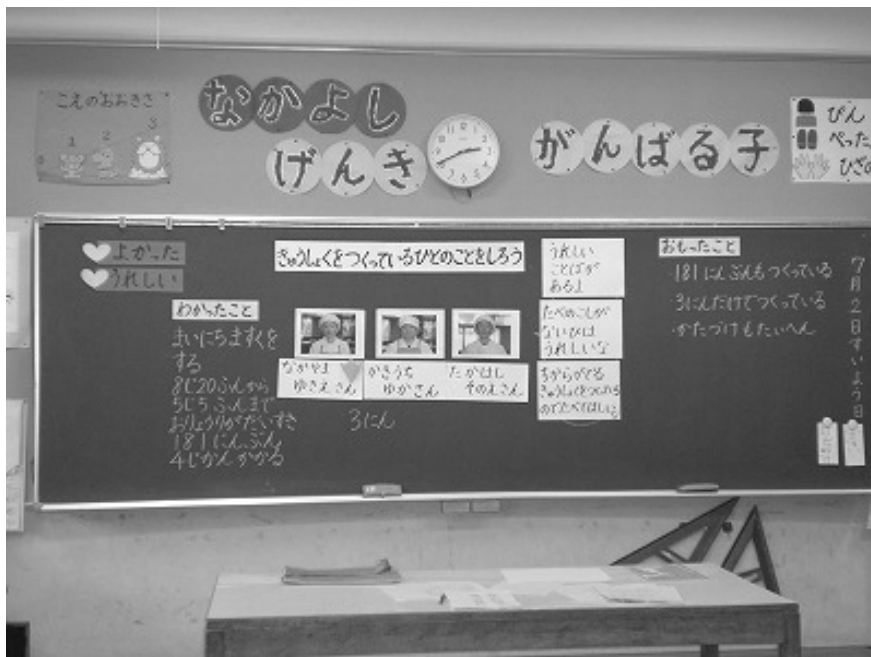 こえのおおきさ
0 1 2 3
なかよし
げんき
がんばる子
ぴん
ぺった
ひざの
よかった
うれしい
きゅうしょくをつくっているひとのことをしろう
わかったこと
まいにちますくを
する
8じ20ぷんから
5じ5ふんまで
おりょうりがだいすき
181にんぶん
4じかんかかる
なかやま
ゆきえさん
かきうち
ゆかさん
たかはし
そのえさん
3にん
うれしい
ことばが
あるよ
たべのこしが
ないひは
うれしいな
ちからがでる
きゅうしょくをつくった
のでたべてほしい
おもったこと
181にんぶんもつくっている
3にんだけでつくっている
かたづけもたいへん
7月2日すいよう日